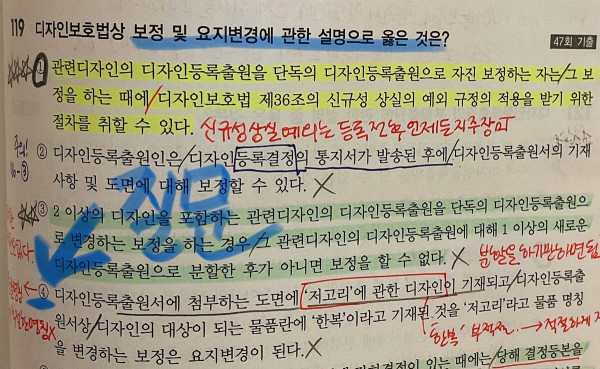 119 디자인보호법상 보정 및 요지변경에 관한 설명으로 옳은 것은? 47회 기출
① 관련디자인의 디자인등록출원을 단독의 디자인등록출원으로 자진 보정하는 자는 그 보
정을 하는 때에 디자인보호법 제36조의 신규성 상실의 예외 규정의 적용을 받기 위한
절차를 취할 수 있다. 신규성상실예외는 등록전 언제든지주장
② 디자인등록출원인은 디자인등록결정의 통지서가 발송된 후에 디자인등록출원서의 기재
사항 및 도면에 대해 보정할 수 있다. X
질문
③ 2 이상의 디자인을 포함하는 관련디자인의 디자인등록출원을 단독의 디자인등록출원으
로 변경하는 보정을 하는 경우 그 관련디자인의 디자인등록출원에 대해 1 이상의 새로운
디자인등록출원으로 분할한 후가 아니면 보정을 할 수 없다. X 분할을하기만하면됨
④ 디자인등록출원서에 첨부하는 도면에 '저고리'에 관한 디자인이 기재되고 디자인등록출
원서상 디자인의 대상이 되는 물품란에 '한복'이라고 기재된 것을 '저고리'라고 물품 명칭
을 변경하는 보정은 요지변경이 된다. X "한복" 부적절 → 적절하게
있는 때에는 당해 결정등본을